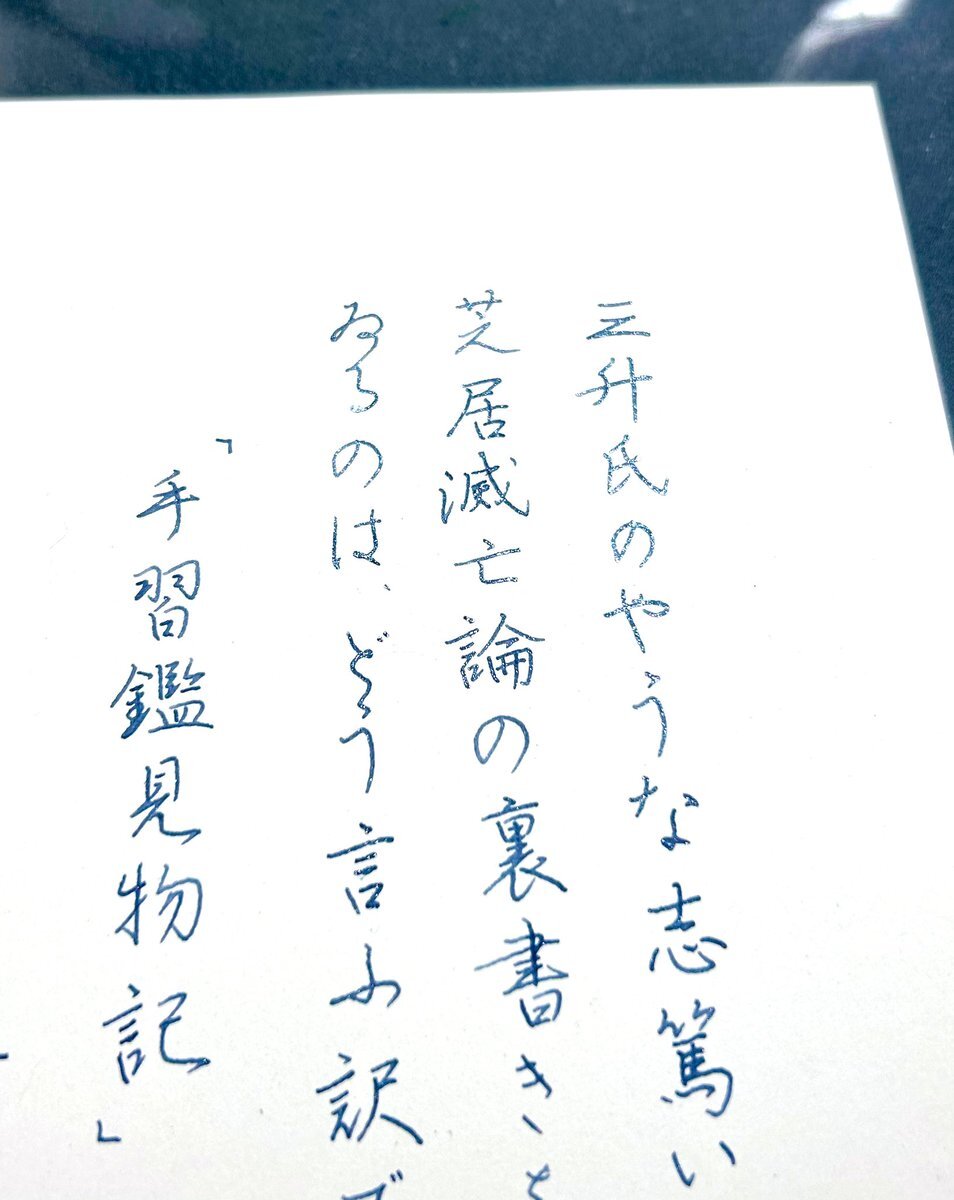 三升氏のやうな志篤い
芝居滅亡論の裏書き
ゐるのは、どう言ふ訳で
「手習鑑見物記」